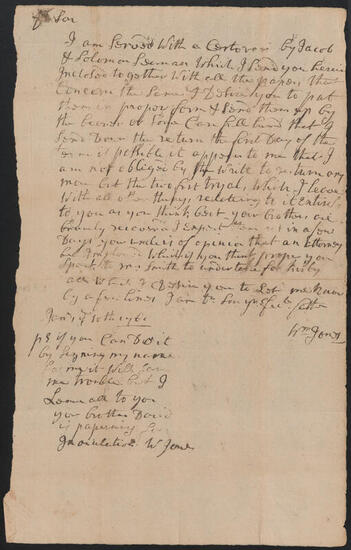 Sor
I am Served With a Certorari by Jacob
& Solomon Seaman Which I Send you herein
Inclosed to gether With all the papers that
Concern the Same I Desire you to put
them in proper form & Send them up by
the bearer or Some Carefull hand that I
Send Down the return the first Day of the
Term if possible it appears to me that I
am not obliged by the Write to return any
more but the two first tryal, Which, I Leave
With all other things relateing to it Entirely
to you as you think best your brothers are
bravely recoverd I expect in a few
Days your unclei is of opinion that an attorney
be Imployd Which if you think proper you
Speak to mr Smith to undertake for
all What I Desire you to Let me Know
by a few Lines I am Sr
Wm Jones
Janry ye 10th 1760
ps if you Can Do it
by Signing my name
for my it Will Save
me trouble but I
Leave all to you
your brother David
is papering for
Inoculation W Jones